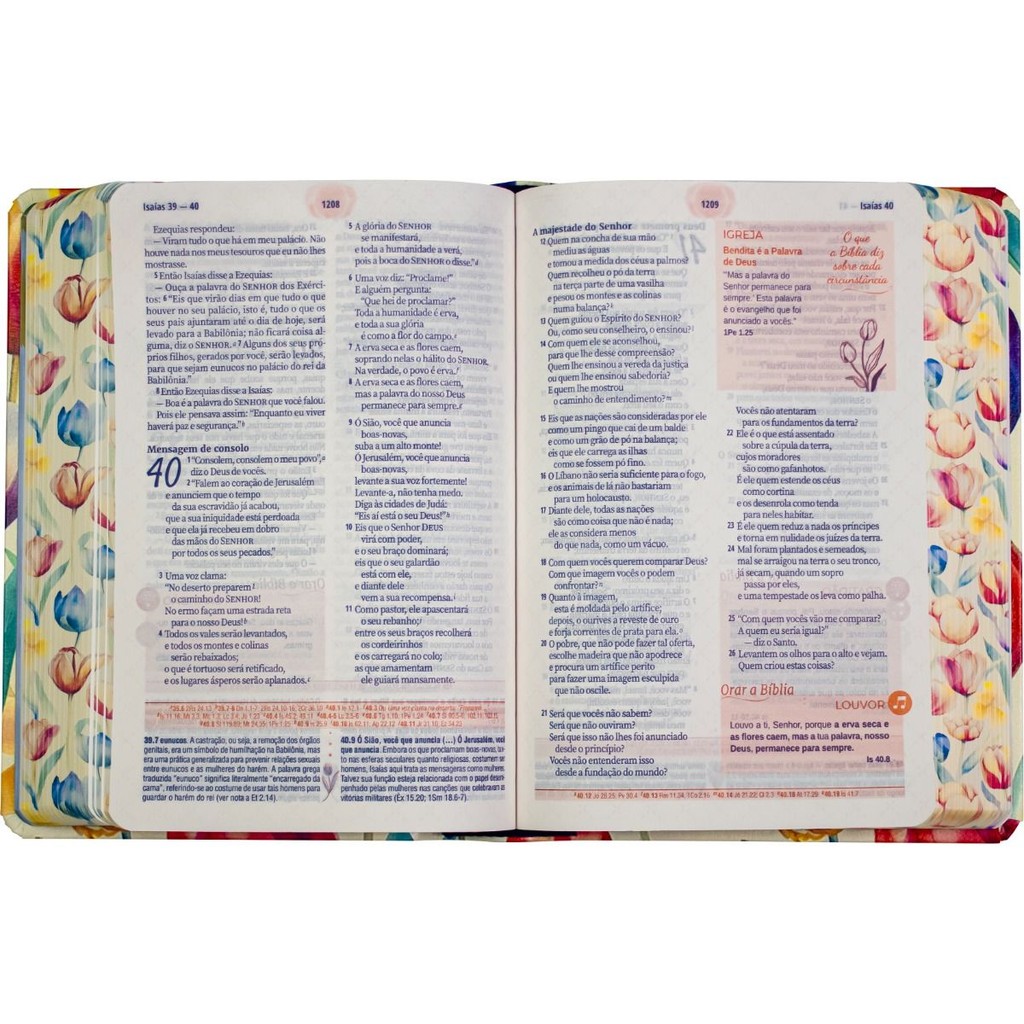 Isaías 39 — 40
1208
Ezequias respondeu:
— Viram tudo o que há em meu palácio. Não
houve nada nos meus tesouros que eu não lhes
mostrasse.
5 Então Isaías disse a Ezequias:
— Ouça a palavra do SENHOR dos Exérci-
tos: 6 "Eis que virão dias em que tudo o que
houver no seu palácio, isto é, tudo o que os
seus pais ajuntaram até o dia de hoje, será
levado para a Babilônia; não ficará coisa al-
guma, diz o SENHOR. 7 Alguns dos seus pró-
prios filhos, gerados por você, serão levados,
para que sejam eunucos no palácio do rei da
Babilônia."
8 Então Ezequias disse a Isaías:
— Boa é a palavra do SENHOR que você falou.
Pois ele pensava assim: "Enquanto eu viver
haverá paz e segurança."
Mensagem de consolo
40
1 "Consolem, consolem o meu povo",
diz o Deus de vocês.
2 "Falem ao coração de Jerusalém
e anunciem que o tempo
da sua escravidão já acabou,
que a sua iniquidade está perdoada
e que ela já recebeu em dobro
das mãos do SENHOR
por todos os seus pecados."
3 Uma voz clama:
"No deserto preparem
o caminho do SENHOR!
No ermo façam uma estrada reta
para o nosso Deus!
4 Todos os vales serão levantados,
e todos os montes e colinas
serão rebaixados;
o que é tortuoso será retificado,
e os lugares ásperos serão aplanados.
5 A glória do SENHOR
se manifestará,
e toda a humanidade a verá,
pois a boca do SENHOR o disse."
6 Uma voz diz: "Proclame!"
E alguém pergunta:
"Que hei de proclamar?"
Toda a humanidade é erva,
e toda a sua glória
é como a flor do campo.
7 A erva seca e as flores caem,
soprando nelas o hálito do SENHOR.
Na verdade, o povo é erva.
8 A erva seca e as flores caem,
mas a palavra do nosso Deus
permanece para sempre.
9 Ó Sião, você que anuncia
boas-novas,
suba a um alto monte!
Ó Jerusalém, você que anuncia
boas-novas,
levante a sua voz fortemente!
Levante-a, não tenha medo.
Diga às cidades de Judá:
"Eis aí está o seu Deus!"
10 Eis que o Senhor DEUS
virá com poder,
e o seu braço dominará;
eis que o seu galardão
está com ele,
e diante dele
vem a sua recompensa.
11 Como pastor, ele apascentará
o seu rebanho;
entre os seus braços recolherá
os cordeirinhos
e os carregará no colo;
as que amamentam
ele guiará mansamente.
39.7 eunucos. A castração, ou seja, a remoção dos órgãos
genitais, era um símbolo de humilhação na Babilônia, mas
era uma prática generalizada para prevenir relações sexuais
entre eunucos e as mulheres do harém. A palavra grega
traduzida "eunuco" significa literalmente "encarregado da
cama", referindo-se ao costume de usar tais homens para
guardar o harém do rei (ver nota a Et 2.14).
40.9 Ó Sião, você que anuncia (...) Ó Jerusalém, você
que anuncia. Embora os que proclamam boas-novas,
nas esferas seculares quanto religiosas, costumem
homens, Isaías aqui trata as mensageiras como mulheres.
Talvez sua função esteja relacionada com o papel desem-
penhado pelas mulheres nas canções que celebravam as
vitórias militares (Êx 15.20; 1Sm 18.6-7).
1209
Isaías 40
A majestade do Senhor
12 Quem na concha de sua mão
mediu as águas
e tomou a medida dos céus a palmos?
Quem recolheu o pó da terra
na terça parte de uma vasilha
e pesou os montes e as colinas
numa balança?
13 Quem guiou o Espírito do SENHOR?
Ou, como seu conselheiro, o ensinou?
14 Com quem ele se aconselhou,
para que lhe desse compreensão?
Quem lhe ensinou a vereda da justiça
ou quem lhe ensinou sabedoria?
E quem lhe mostrou
o caminho de entendimento?
15 Eis que as nações são consideradas por ele
como um pingo que cai de um balde
e como um grão de pó na balança;
eis que ele carrega as ilhas
como se fossem pó fino.
16 O Líbano não seria suficiente para o fogo,
e os animais de lá não bastariam
para um holocausto.
17 Diante dele, todas as nações
são como coisa que não é nada;
ele as considera menos
do que nada, como um vácuo.
18 Com quem vocês querem comparar Deus?
Com que imagem vocês o podem
confrontar?
19 Quanto à imagem,
esta é moldada pelo artífice;
depois, o ourives a reveste de ouro
e forja correntes de prata para ela.
20 O pobre, que não pode fazer tal oferta,
escolhe madeira que não apodrece
e procura um artífice perito
para fazer uma imagem esculpida
que não oscile.
21 Será que vocês não sabem?
Será que não ouviram?
Será que isso não lhes foi anunciado
desde o princípio?
Vocês não entenderam isso
desde a fundação do mundo?
IGREJA
Bendita é a Palavra
de Deus
"Mas a palavra do
Senhor permanece para
sempre.' Esta palavra
é o evangelho que foi
anunciado a vocês."
1Pe 1.25
O que
a Bíblia diz
sobre cada
circunstância
Vocês não atentaram
para os fundamentos da terra?
22 Ele é o que está assentado
sobre a cúpula da terra,
cujos moradores
são como gafanhotos.
É ele quem estende os céus
como cortina
e os desenrola como tenda
para neles habitar.
23 É ele quem reduz a nada os príncipes
e torna em nulidade os juízes da terra.
24 Mal foram plantados e semeados,
mal se arraigou na terra o seu tronco,
já secam, quando um sopro
passa por eles,
e uma tempestade os leva como palha.
25 "Com quem vocês vão me comparar?
A quem eu seria igual?"
— diz o Santo.
26 Levantem os olhos para o alto e vejam.
Quem criou estas coisas?
Orar a Bíblia
LOUVOR
Louvo a ti, Senhor, porque a erva seca e
as flores caem, mas a tua palavra, nosso
Deus, permanece para sempre.
Is 40.8